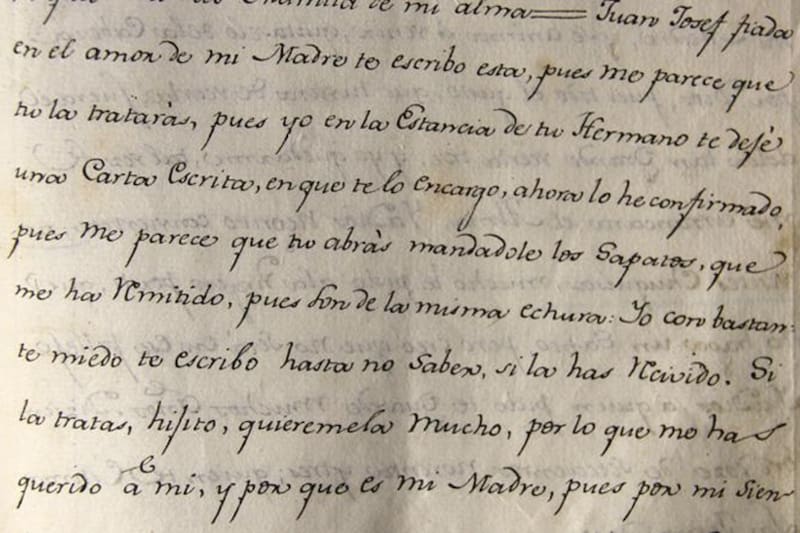 de mi alma = Juan Josef fiada
en el amor de mi Madre te escribo esta, pues me parece que
tu la trataràs, pues yo en la Estancia de tu Hermano te dejé
una Carta Escrita, en que te lo encargo, ahora lo he confirmado,
pues me parece que tu abràs mandadole los Sapatos, que
me ha Remitido, pues son de la misma echura: Yo con bastan-
te miedo te escribo hasta no Saber, si la has Recivido. Si
la tratas, hijito, quieremela Mucho, por lo que me has
querido â mi, y por que es mi Madre, pues por mi sien-